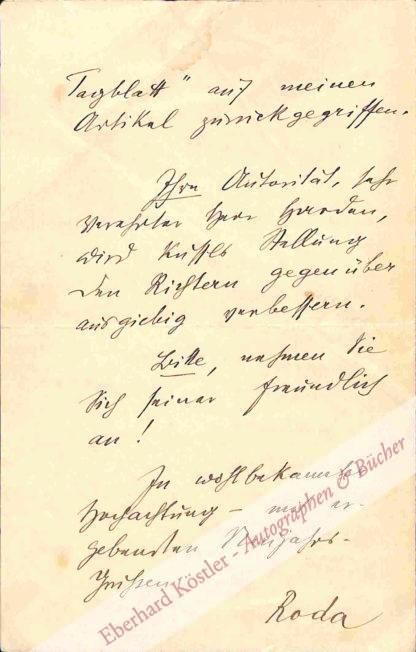 Tagblatt" auf meinen
Artikel zurückgegriffen.
Ihre Autorität, sehr
verehrter Herr Harden,
wird Stellung
den Richtern gegenüber
ausgiebig verbessern.
Bitte, nehmen Sie
sich seiner freundlich
an!
In wohlbekannter
Hochachtung – mit er-
gebensten Neujahrs-
Grüssen
Roda
Eberhard Köstler - Autographen & Bücher